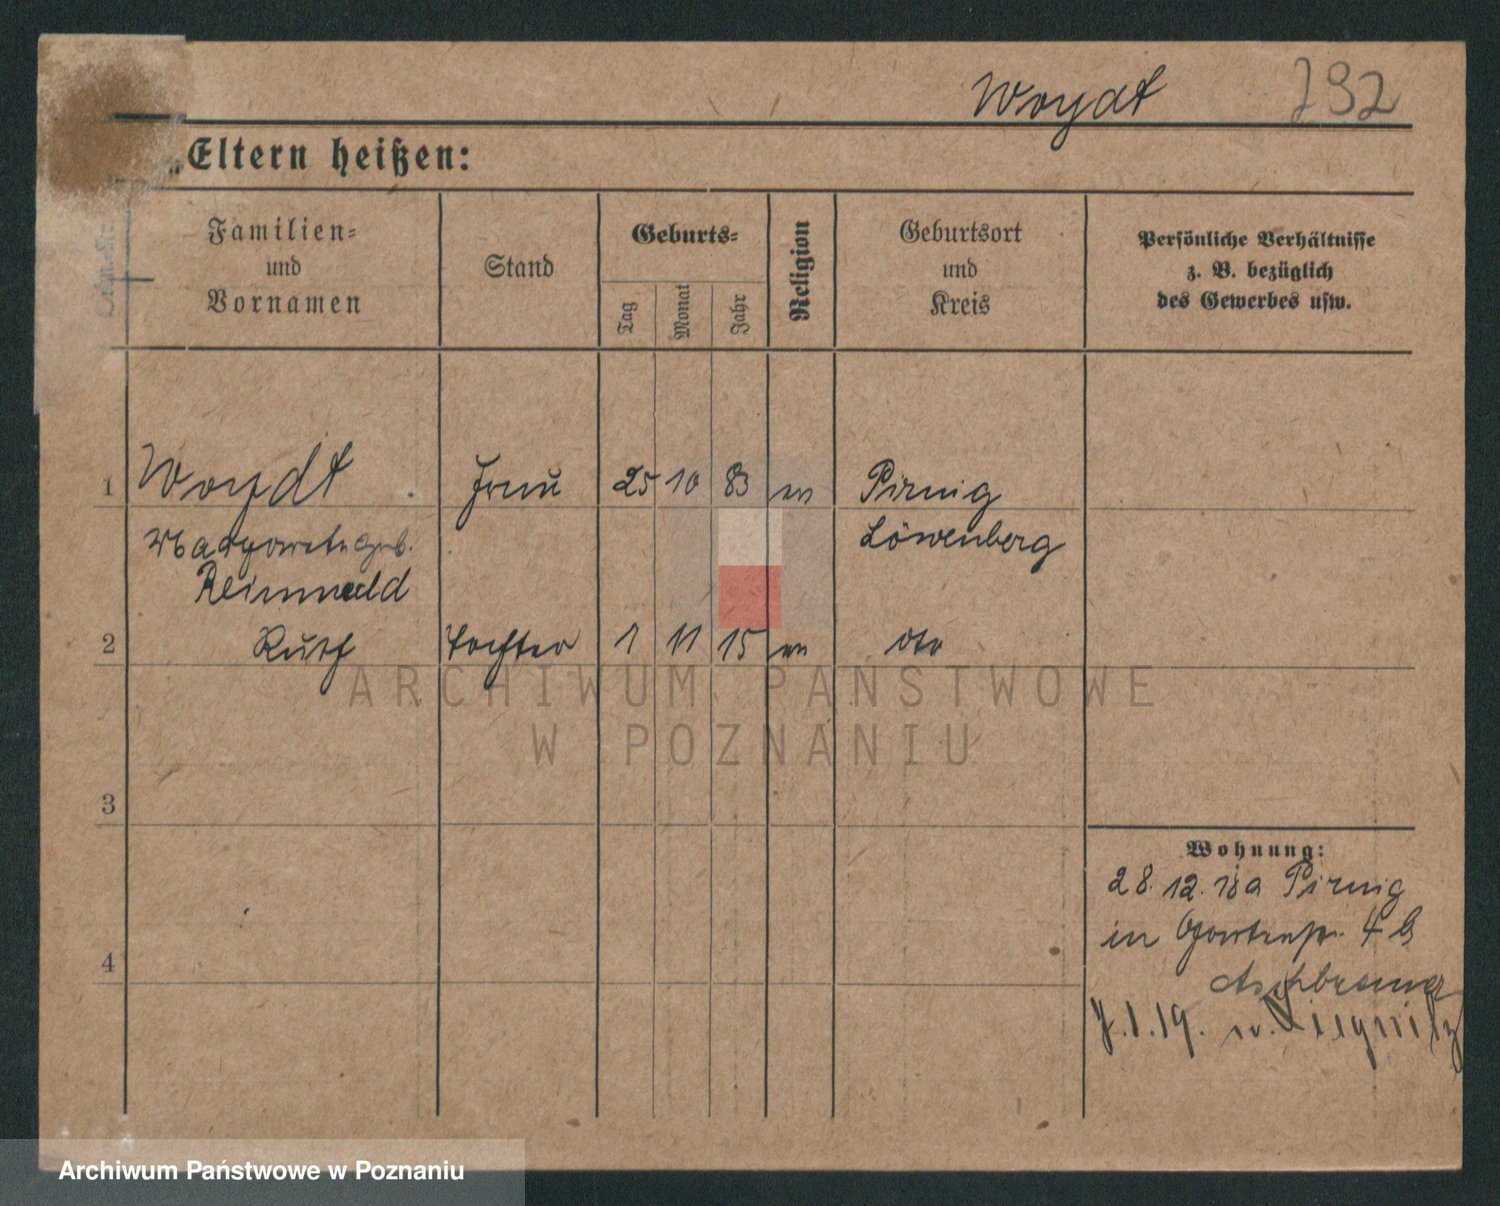 Woydt 292
„Eltern heißen:
Familien=
und
Vornamen
Stand
Geburts=
Tag
Monat
Jahr
Religion
Geburtsort
und
Kreis
Persönliche Verhältnisse
z. B. bezüglich
des Gewerbes usw.
1 Woydt Frau 25 10 83 ev Pirnig
Margarete geb. Löwenberg
Reimwald
2 Ruth Tochter 1 11 15 ev dto
ARCHIWUM PAŃSTWOWE
W POZNANIU
3
Wohnung:
28.12.18 a Pirnig
in Gartenstr. 4 b
4
7.1.19. n. Liegnitz
Archiwum Państwowe w Poznaniu